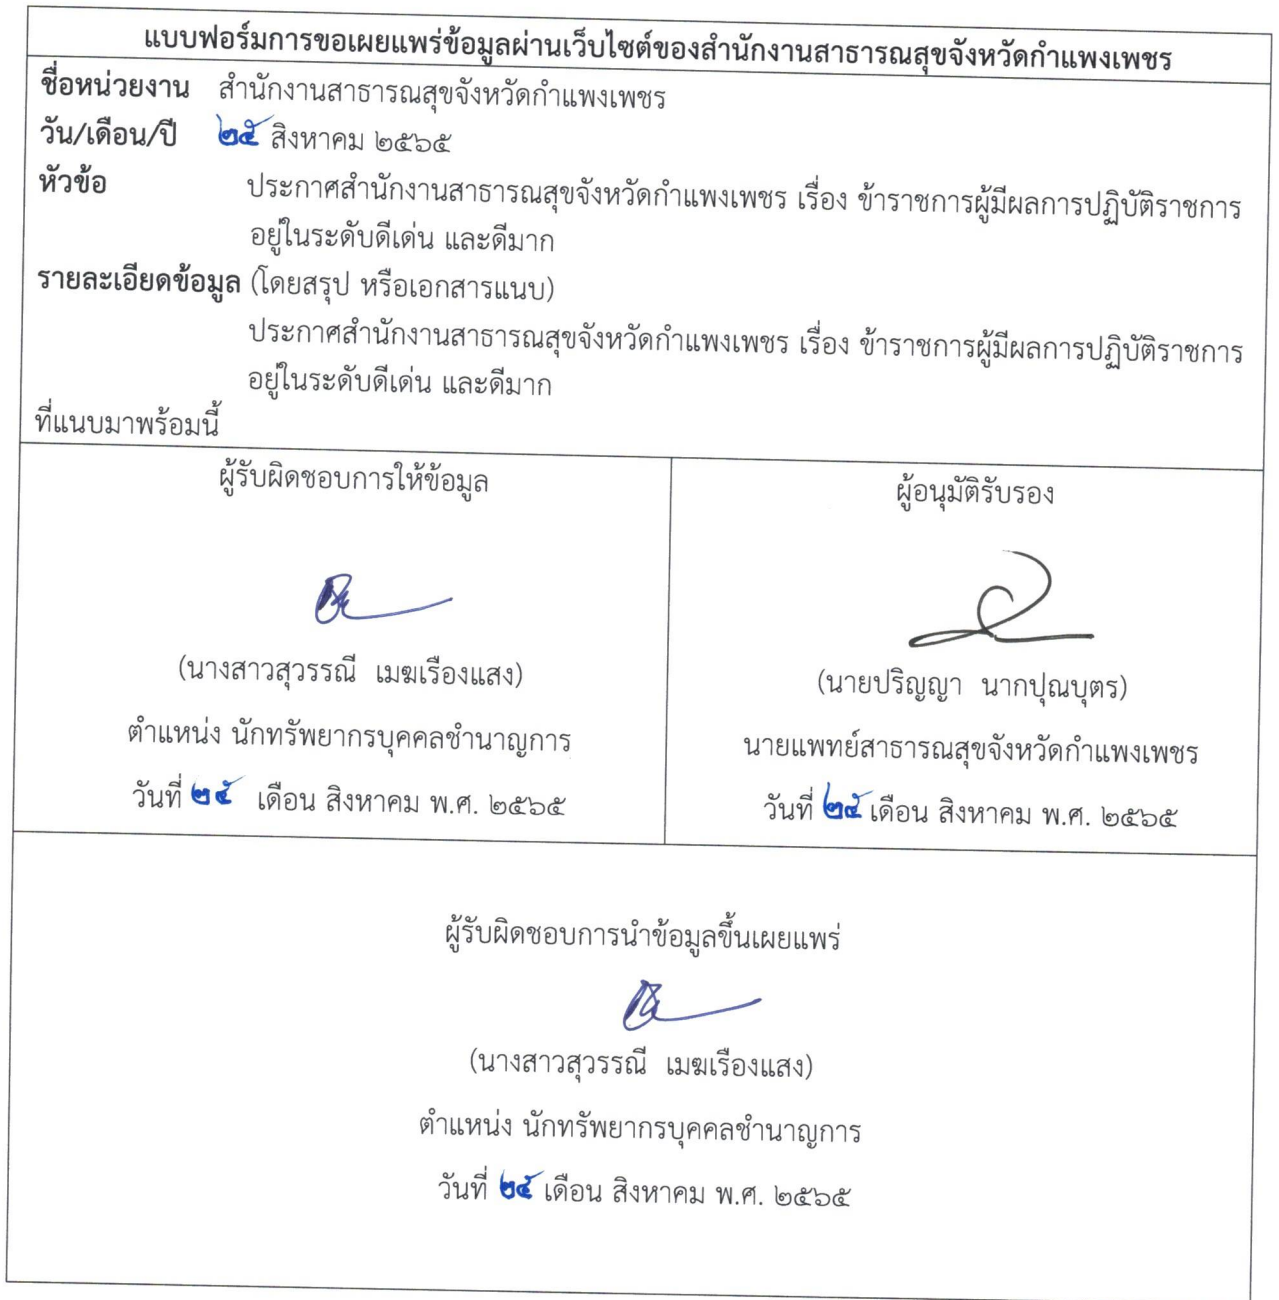 แบบฟอร์มการขอเผยแพร่ข้อมูลผ่านเว็บไซต์ของสำนักงานสาธารณสุขจังหวัดกำแพงเพชร
ชื่อหน่วยงาน สำนักงานสาธารณสุขจังหวัดกำแพงเพชร
วัน/เดือน/ปี ๒๕ สิงหาคม ๒๕๖๕
หัวข้อ ประกาศสำนักงานสาธารณสุขจังหวัดกำแพงเพชร เรื่อง ข้าราชการผู้มีผลการปฏิบัติราชการ
อยู่ในระดับดีเด่น และดีมาก
รายละเอียดข้อมูล (โดยสรุป หรือเอกสารแนบ)
ประกาศสำนักงานสาธารณสุขจังหวัดกำแพงเพชร เรื่อง ข้าราชการผู้มีผลการปฏิบัติราชการ
อยู่ในระดับดีเด่น และดีมาก
ที่แนบมาพร้อมนี้
ผู้รับผิดชอบการให้ข้อมูล
(นางสาวสุวรรณี เมฆเรืองแสง)
ตำแหน่ง นักทรัพยากรบุคคลชำนาญการ
วันที่ ๒๕ เดือน สิงหาคม พ.ศ. ๒๕๖๕
ผู้อนุมัติรับรอง
(นายปริญญา นากปุณบุตร)
นายแพทย์สาธารณสุขจังหวัดกำแพงเพชร
วันที่ ๒๕ เดือน สิงหาคม พ.ศ. ๒๕๖๕
ผู้รับผิดชอบการนำข้อมูลขึ้นเผยแพร่
(นางสาวสุวรรณี เมฆเรืองแสง)
ตำแหน่ง นักทรัพยากรบุคคลชำนาญการ
วันที่ ๒๕ เดือน สิงหาคม พ.ศ. ๒๕๖๕